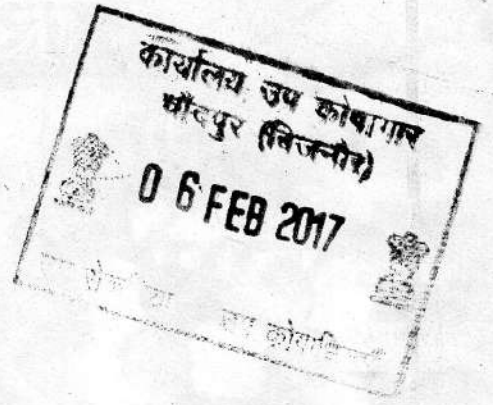 कार्यालय उप कोषागार
चाँदपुर (बिजनौर)
0 6 FEB 2017
उप